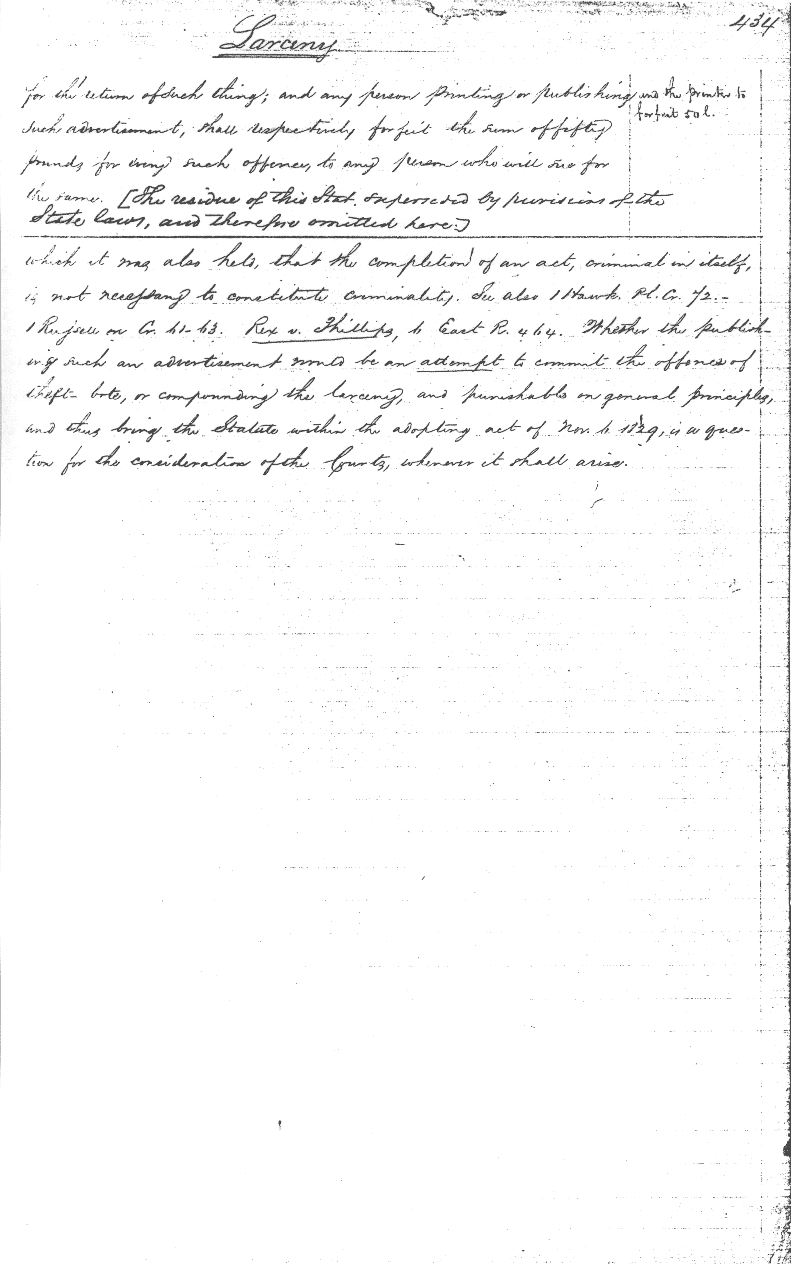 434
Larceny
for the return of such thing; and any person printing or publishing
such advertisement, shall respectively forfeit the sum of fifty
pounds for every such offence, to any person who will sue for
the same. [The residue of this Stat. superseded by provisions of the
State laws, and therefore omitted here.]
and the printer to
forfeit 50 l.
which it was also held, that the completion of an act, criminal in itself,
is not necessary to constitute criminality. See also 1 Hawk. Pl. Cr. 72.-
1 Russell on Cr. 61-63. Rex v. Phillips, 6 East R. 464. Whether the publish-
ing such an advertisement would be an attempt to commit the offence of
theft-bote, or compounding the larceny, and punishable on general principles,
and thus bring the Statute within the adopting act of Nov. 6 1829, is a ques-
tion for the consideration of the Courts, whenever it shall arise.